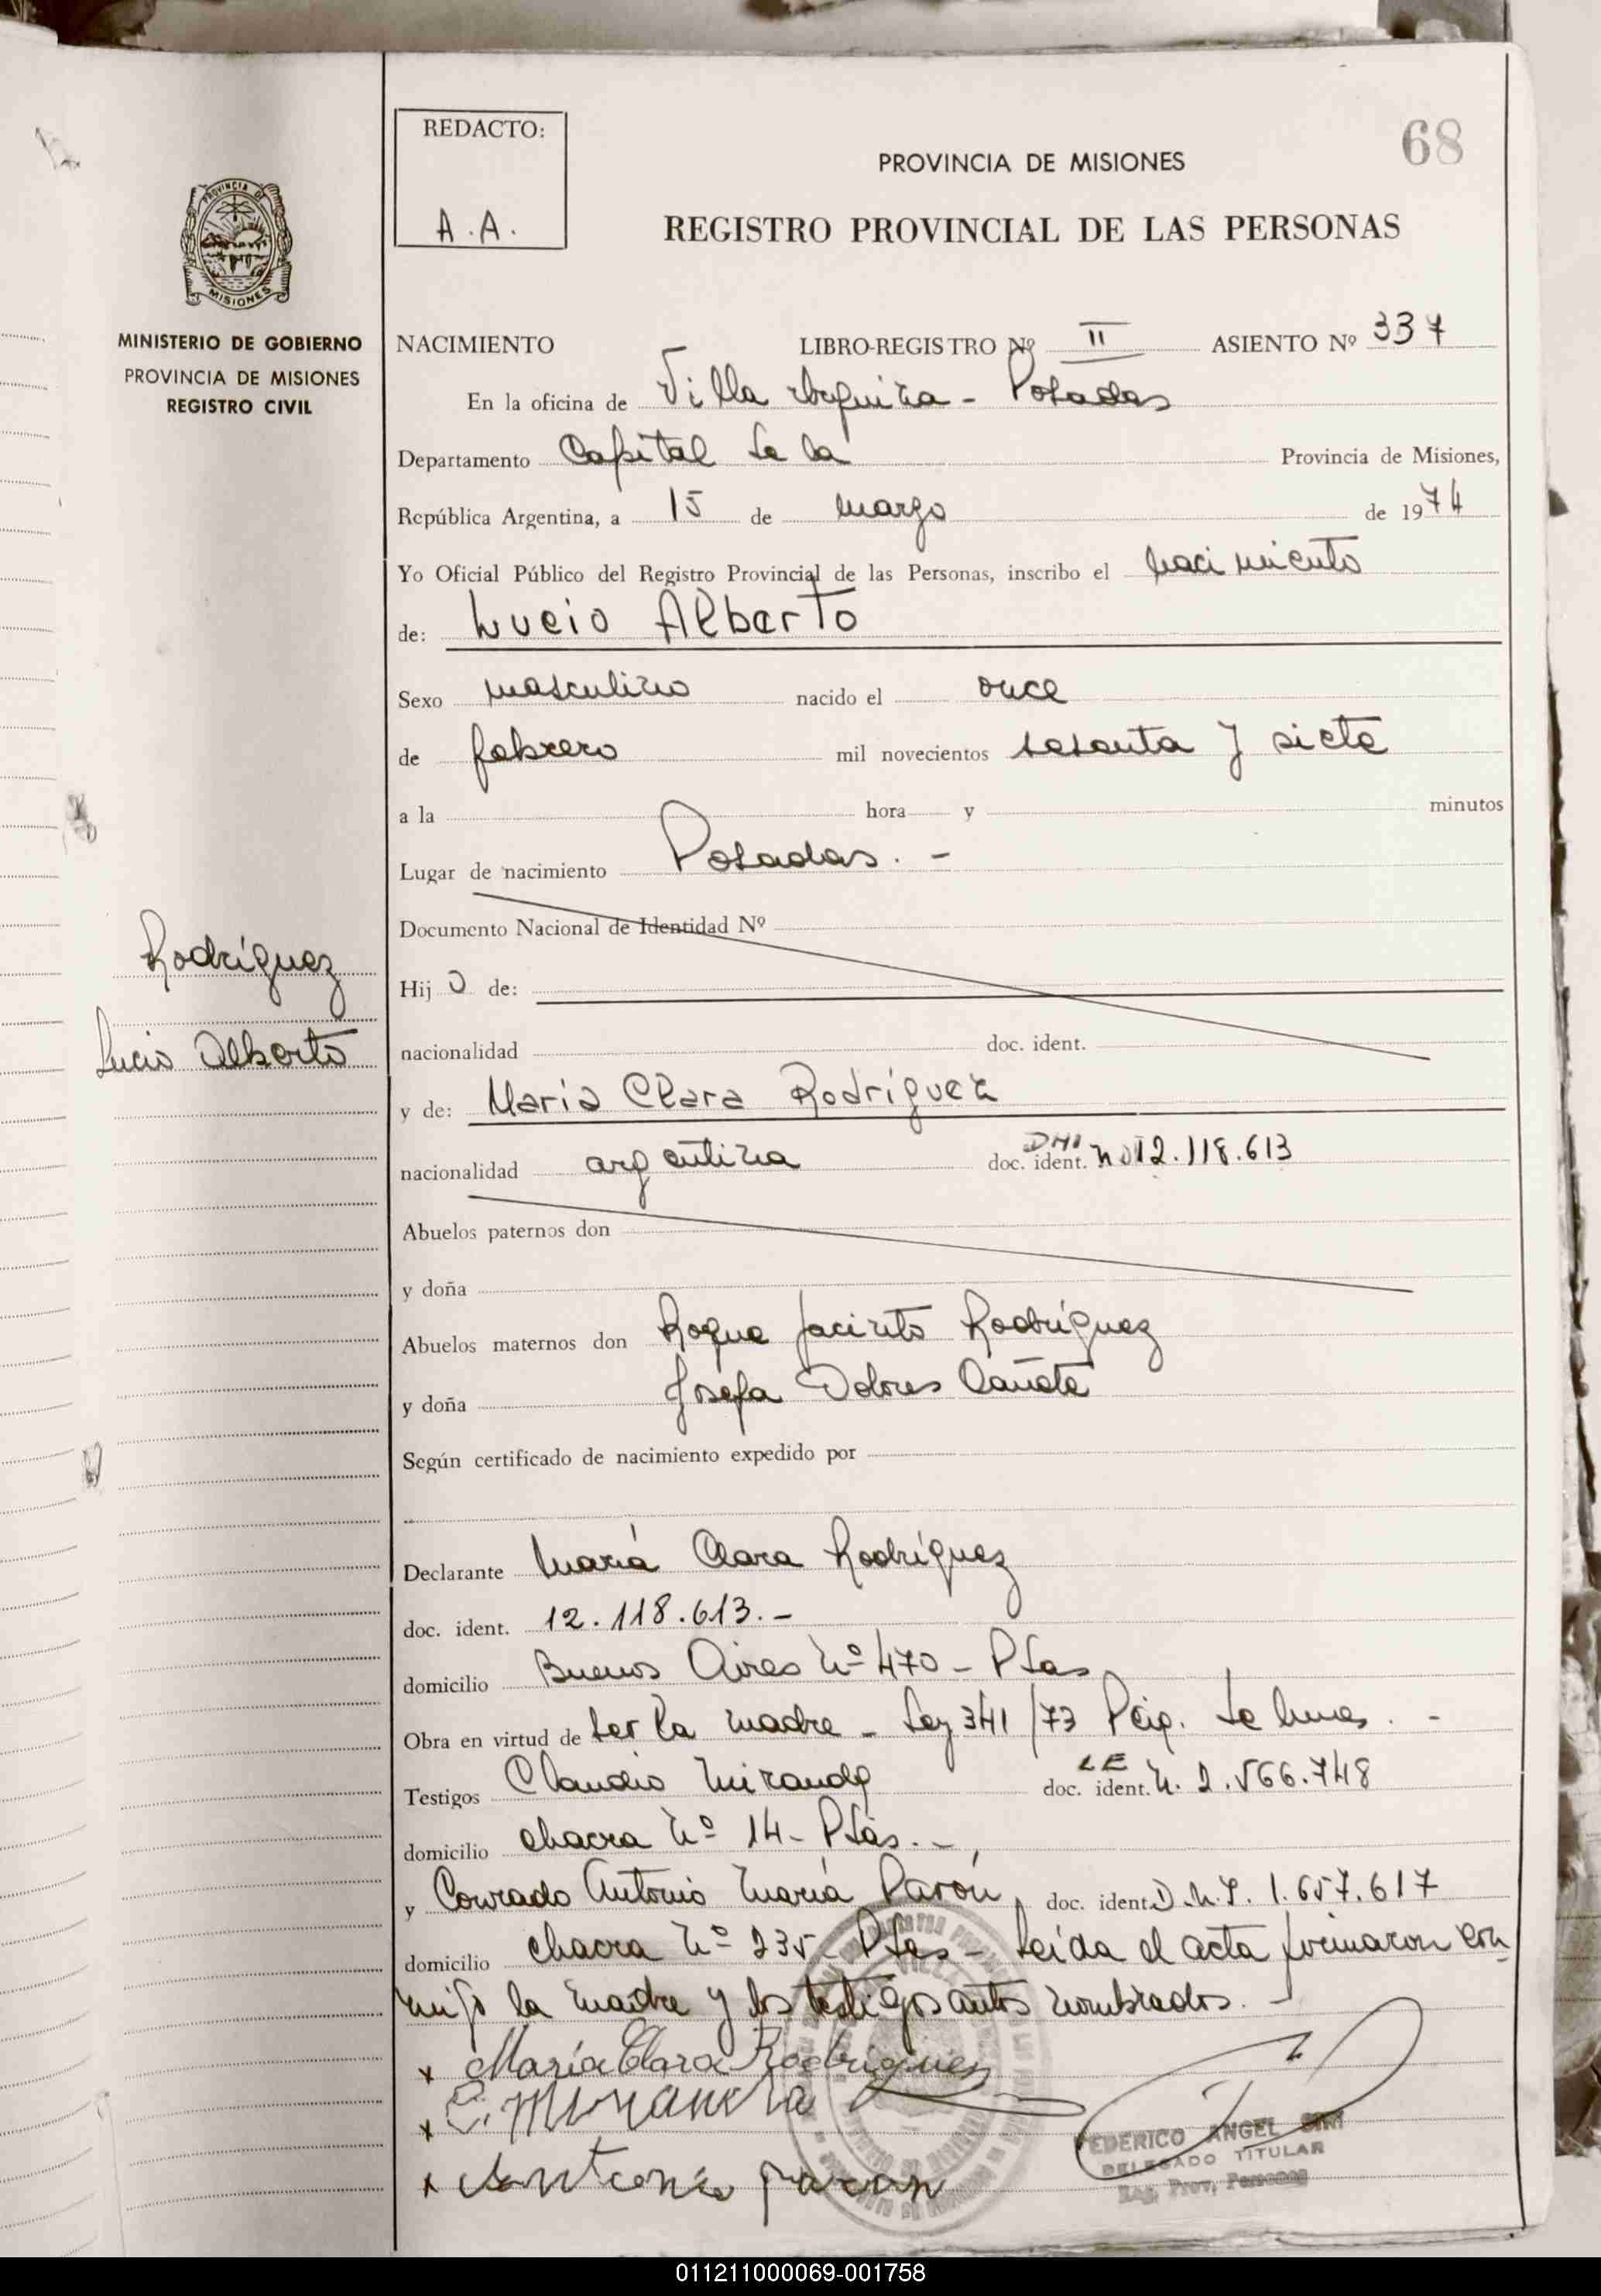 68
REDACTO:
A.A.
PROVINCIA DE MISIONES
REGISTRO PROVINCIAL DE LAS PERSONAS
PROVINCIA DE
MISIONES
MINISTERIO DE GOBIERNO
PROVINCIA DE MISIONES
REGISTRO CIVIL
NACIMIENTO LIBRO-REGISTRO Nº II ASIENTO Nº 337
En la oficina de Villa Urquiza - Posadas
Departamento Capital de la Provincia de Misiones,
República Argentina, a 15 de marzo de 1974
Yo Oficial Público del Registro Provincial de las Personas, inscribo el nacimiento
de: Lucio Alberto
Sexo masculino nacido el once
de febrero mil novecientos sesenta y siete
a la hora y minutos
Lugar de nacimiento Posadas. -
Documento Nacional de Identidad Nº
Rodríguez
Lucio Alberto
Hij o de:
nacionalidad doc. ident.
y de: María Clara Rodríguez
nacionalidad argentina doc. ident. DNI Nº 12.118.613
Abuelos paternos don
y doña
Abuelos maternos don Roque Jacinto Rodríguez
y doña Josefa Dolores Cañete
Según certificado de nacimiento expedido por
Declarante María Clara Rodríguez
doc. ident. 12.118.613.-
domicilio Buenos Aires Nº 470 - Pdas
Obra en virtud de ser la madre - Ley 341/73 Pcia. de Mnes. -
Testigos Claudio Miranda doc. ident. LE N. 2.566.748
domicilio chacra Nº 14 - Pdas. -
y Conrado Antonio María Parón, doc. ident. D.N.I. 1.657.617
domicilio chacra Nº 235 - Pdas - Leída el acta firmaron con
migo la madre y los testigos antes nombrados. -
x María Clara Rodríguez
x C. Miranda
x Antonio Paron
FEDERICO ANGEL
DELEGADO TITULAR
Reg. Prov. Personas
011211000069-001758